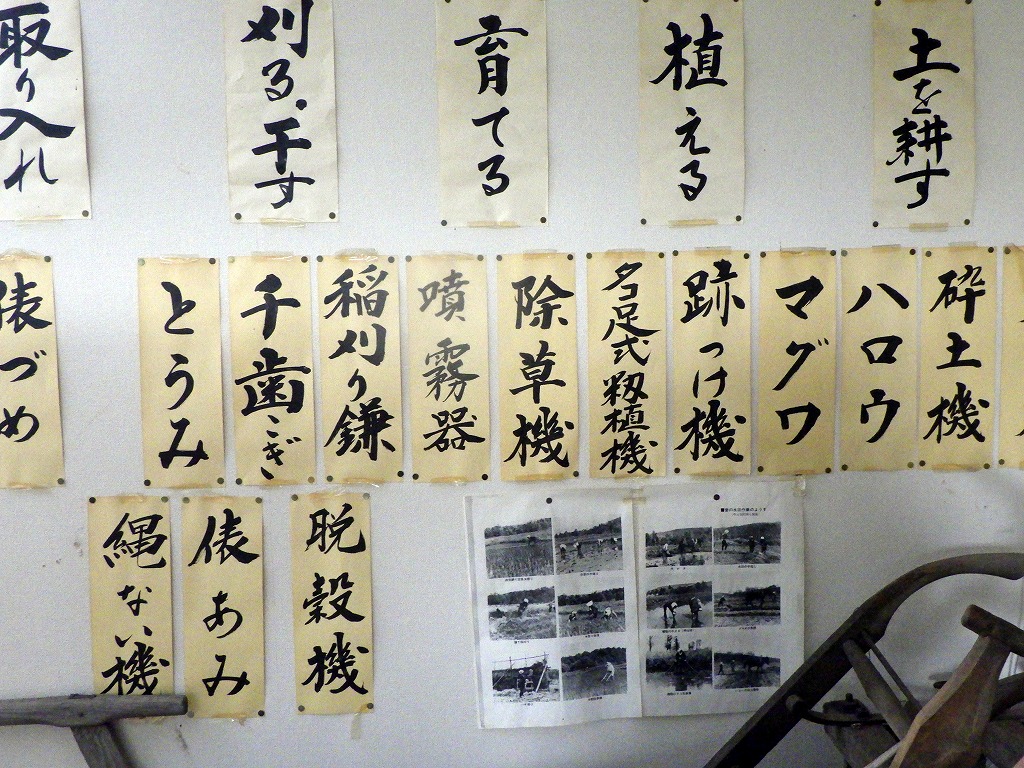 土を耕す
植える
育てる
刈る・干す
取り入れ
砕土機
ハロウ
マグワ
跡つけ機
名足式籾植機
除草機
噴霧器
稲刈り鎌
千歯こぎ
とうみ
俵づめ
脱穀機
俵あみ
縄ない機